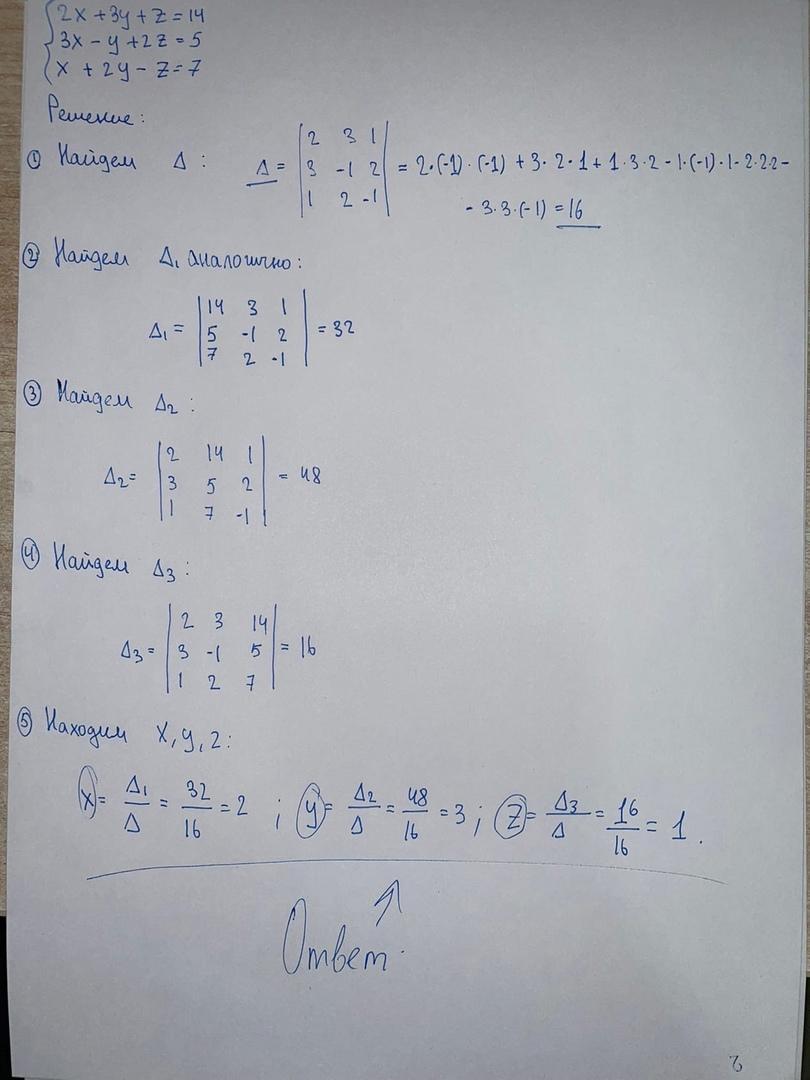 2x + 3y + z = 14
3x - y + 2z = 5
x + 2y - z = 7
Решение:
① Найдем Δ: Δ = | 2 3 1 | = 2·(-1)·(-1) + 3·2·1 + 1·3·2 - 1·(-1)·1 - 2·2·2 -
| 3 -1 2 |
| 1 2 -1 |
- 3·3·(-1) = 16
② Найдем Δ₁ аналогично:
| 14 3 1 |
Δ₁ = | 5 -1 2 | = 32
| 7 2 -1 |
③ Найдем Δ₂:
| 2 14 1 |
Δ₂ = | 3 5 2 | = 48
| 1 7 -1 |
④ Найдем Δ₃:
| 2 3 14 |
Δ₃ = | 3 -1 5 | = 16
| 1 2 7 |
⑤ Находим x, y, z:
x = Δ₁/Δ = 32/16 = 2 ; y = Δ₂/Δ = 48/16 = 3 ; z = Δ₃/Δ = 16/16 = 1.
Ответ.
2